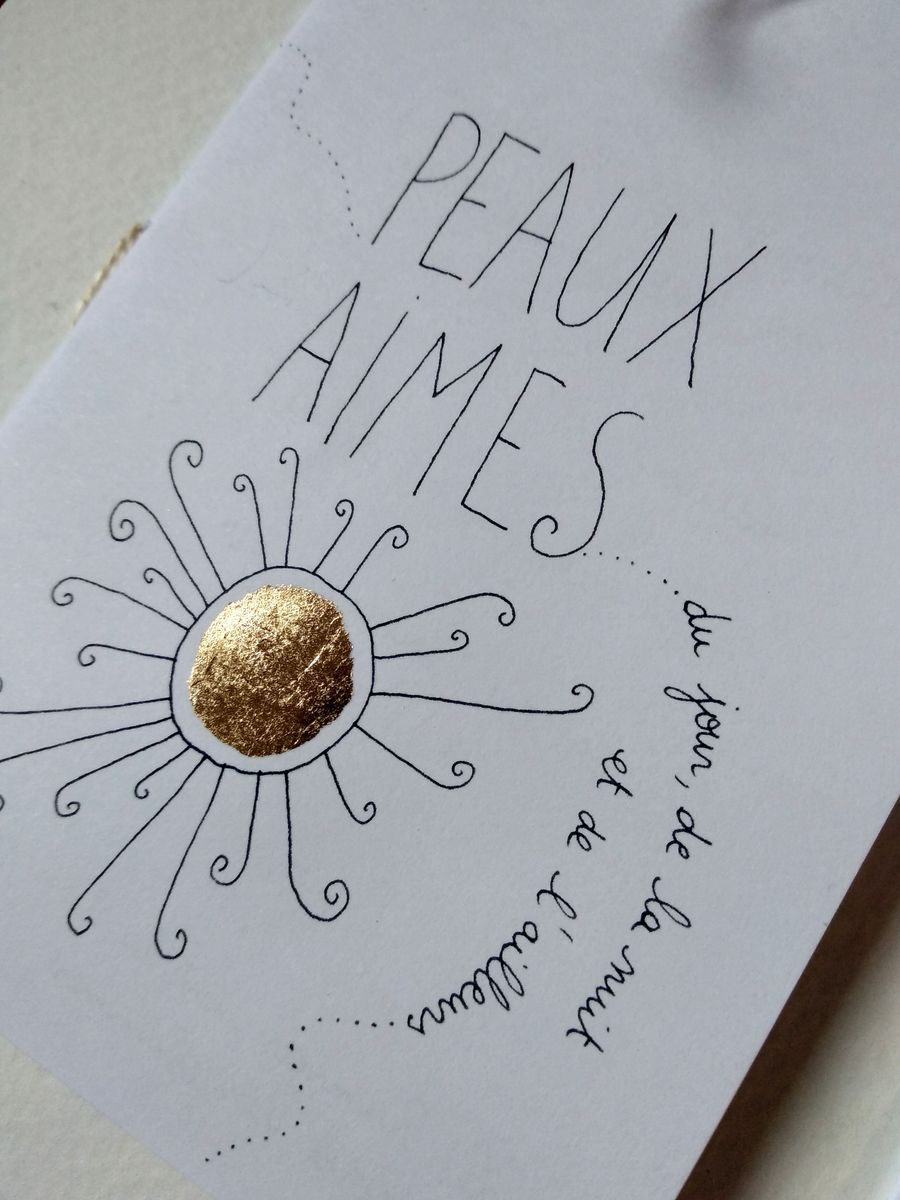 PEAUX
AIMES
du jour, de la nuit
et de l'ailleurs